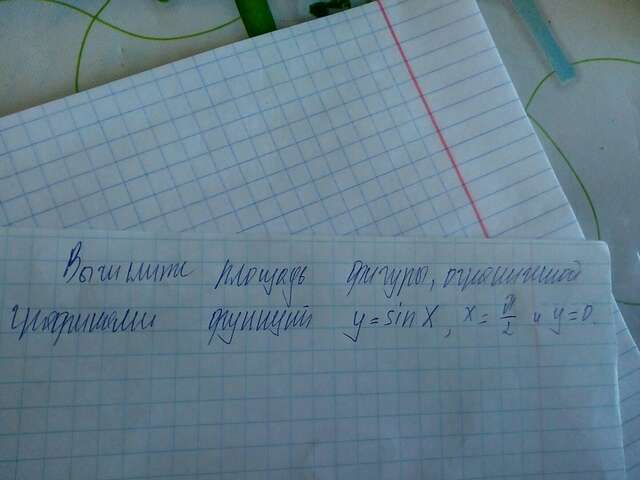 Вычислите площадь фигуры, ограниченной
графиками функций y = sin x, x = π/2 и y = 0.